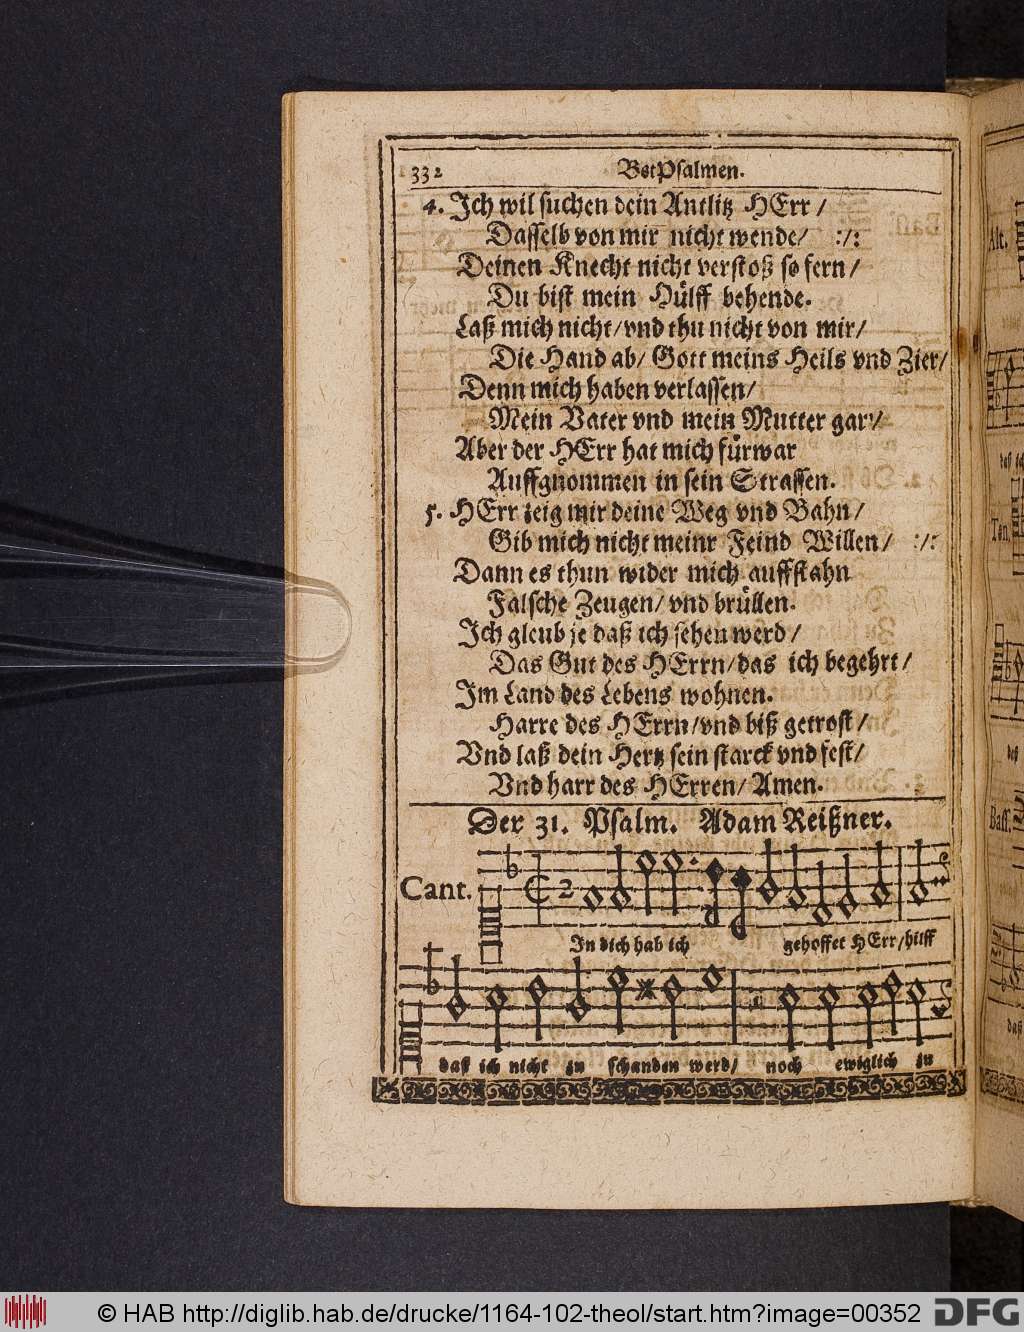 332 BetPsalmen.
4. Ich wil suchen dein Antlitz HErr /
Dasselb von mir nicht wende/ :/:
Deinen Knecht nicht verstoß so fern/
Du bist mein Hülff behende.
Laß mich nicht/vnd thu nicht von mir/
Die Hand ab/ Gott meins Heils vnd Zier/
Denn mich haben verlassen/
Mein Vater vnd mein Mutter gar/
Aber der HErr hat mich fürwar
Auffgnommen in sein Strassen.
5. HErr zeig mir deine Weg vnd Bahn/
Gib mich nicht meinr Feind Willen/ :/:
Dann es thun wider mich auffstahn
Falsche Zeugen/ vnd brüllen.
Ich gleub je daß ich sehen werd/
Das Gut des HErrn/das ich begehrt/
Im Land des Lebens wohnen.
Harre des HErrn/vnd biß getrost/
Vnd laß dein Hertz sein starck vnd fest/
Vnd harr des HErren/ Amen.
Der 31. Psalm. Adam Reißner.
Cant. 2
In dich hab ich gehoffet HErr/hilff
daß ich nicht zu schanden werd/ noch ewiglich zu
Alt.
daß ich
Ten.
Bass.
daß
© HAB http://diglib.hab.de/drucke/1164-102-theol/start.htm?image=00352
DFG